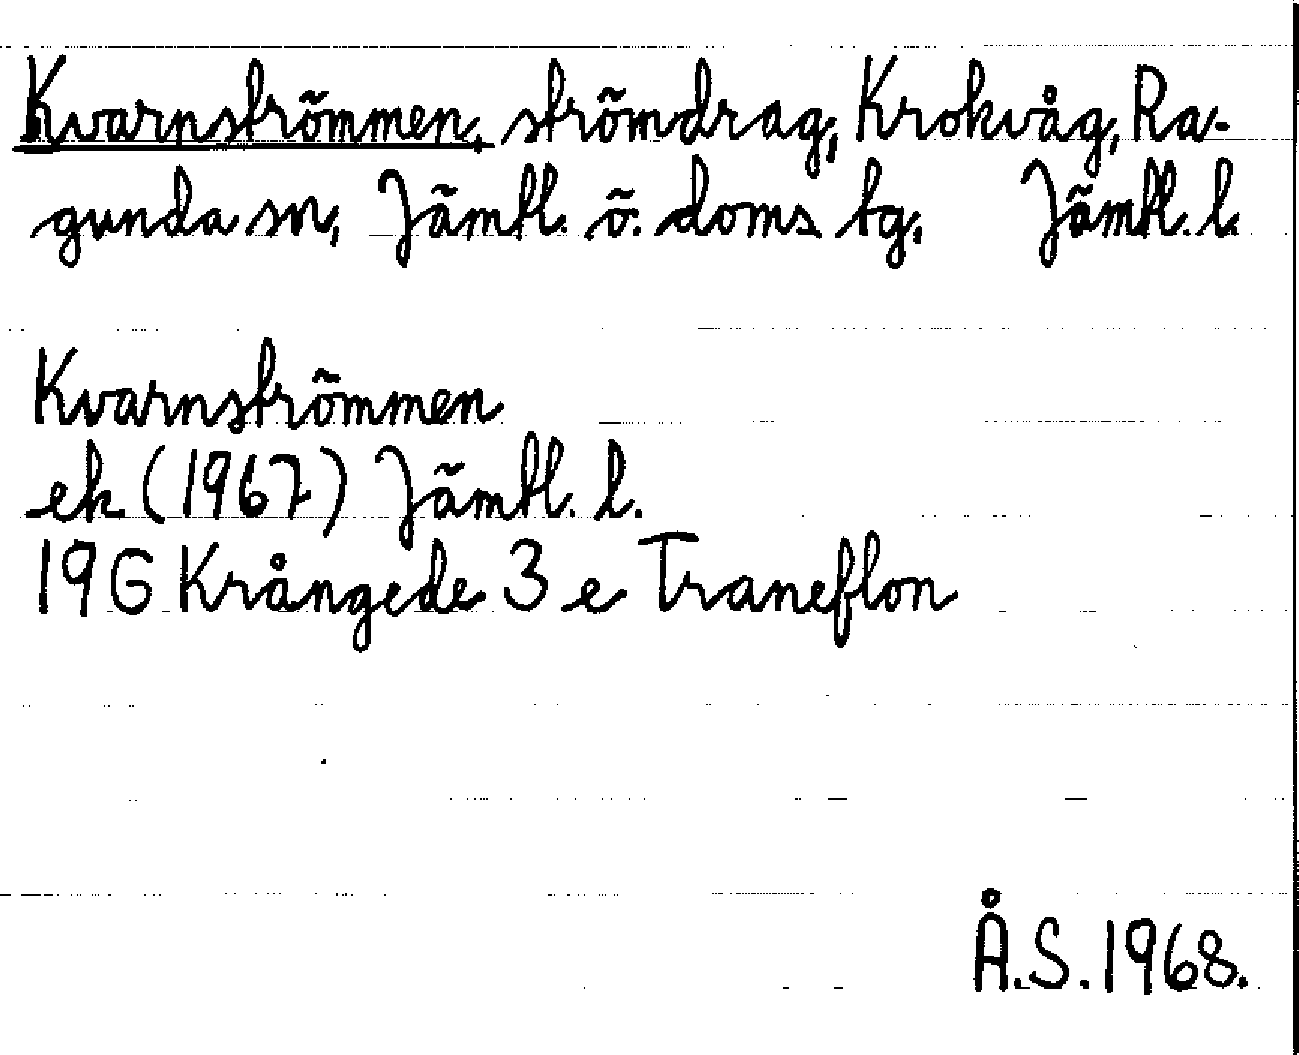 Kvarnströmmen, strömdrag, Krokvåg, Ra-
gunda sn, Jämtl. ö. doms. tg. Jämtl. l.
Kvarnströmmen
ek (1967) Jämtl. l.
19G Krångede 3 e Traneflon
Å.S. 1968.